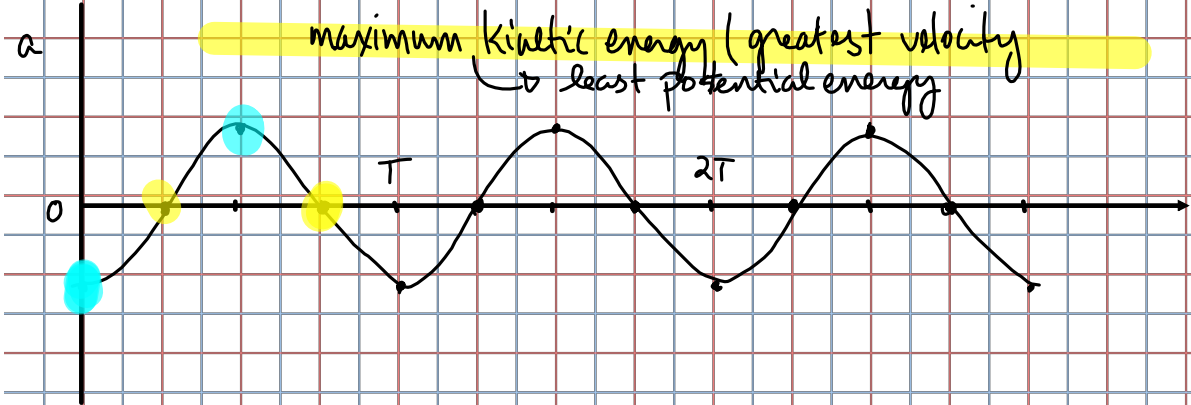 a
maximum kinetic energy / greatest velocity
↳ least potential energy
T
2T
0